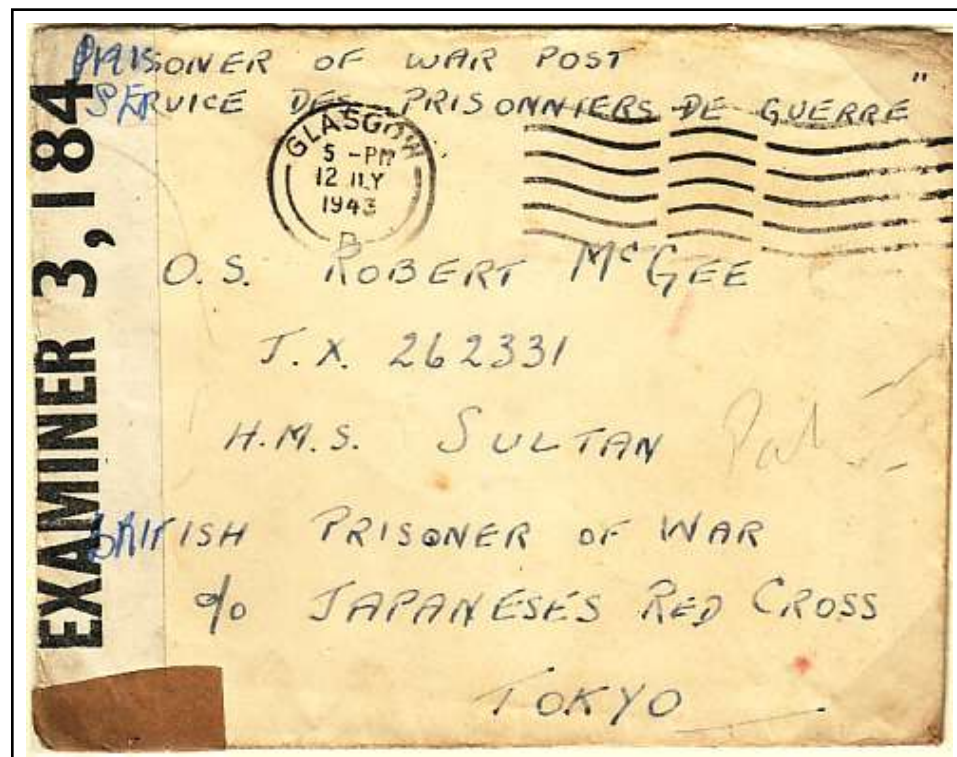 PRISONER OF WAR POST
"
SERVICE DES PRISONNIERS DE GUERRE
GLASGOW
5 - PM
12 JLY
1943
O.S. ROBERT McGEE
J.X. 262331
H.M.S. SULTAN
BRITISH PRISONER OF WAR
c/o JAPANESES RED CROSS
TOKYO
EXAMINER 3,184